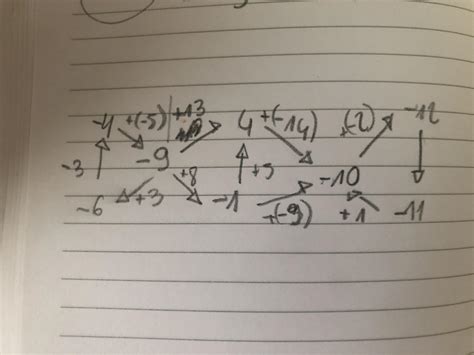 -4 +(-5) +13 4 +(-14) (-2) -12
-3 -9 +8 +5 -10
-6 +3 -1 +(-9) +1 -11